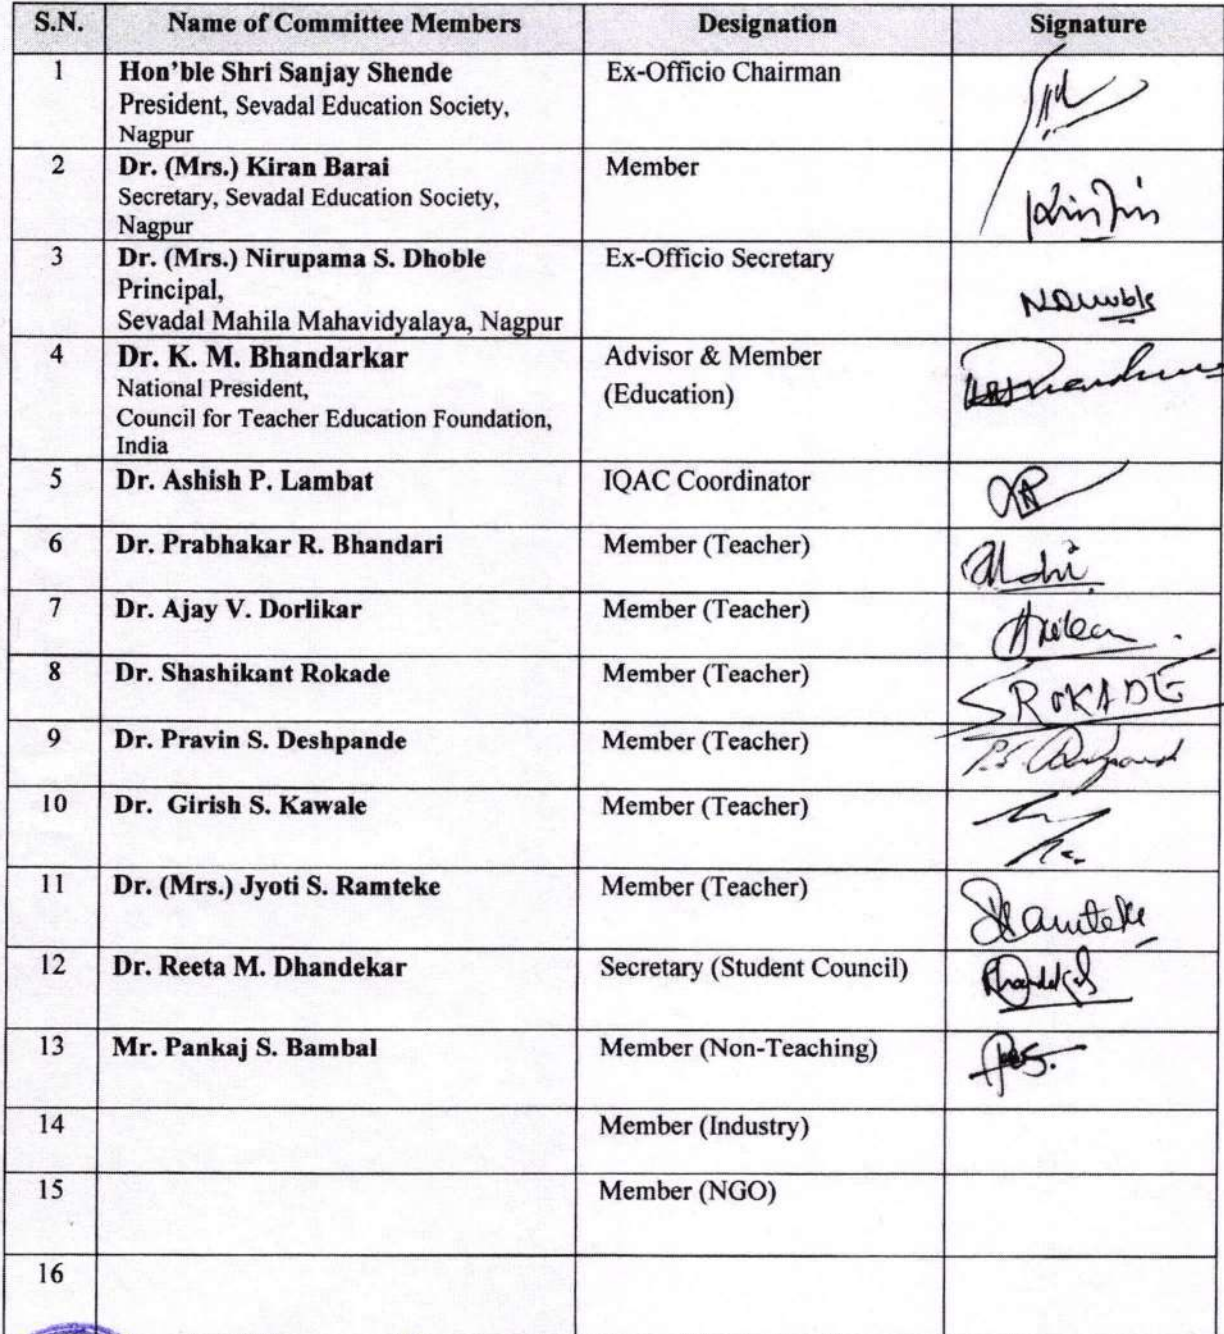 S.N. Name of Committee Members Designation Signature
1 Hon'ble Shri Sanjay Shende Ex-Officio Chairman
President, Sevadal Education Society,
Nagpur
2 Dr. (Mrs.) Kiran Barai Member
Secretary, Sevadal Education Society,
Nagpur
3 Dr. (Mrs.) Nirupama S. Dhoble Ex-Officio Secretary
Principal,
Sevadal Mahila Mahavidyalaya, Nagpur
4 Dr. K. M. Bhandarkar Advisor & Member
National President, (Education)
Council for Teacher Education Foundation,
India
5 Dr. Ashish P. Lambat IQAC Coordinator
6 Dr. Prabhakar R. Bhandari Member (Teacher)
7 Dr. Ajay V. Dorlikar Member (Teacher)
8 Dr. Shashikant Rokade Member (Teacher) SROKADE
9 Dr. Pravin S. Deshpande Member (Teacher)
10 Dr. Girish S. Kawale Member (Teacher)
11 Dr. (Mrs.) Jyoti S. Ramteke Member (Teacher)
12 Dr. Reeta M. Dhandekar Secretary (Student Council)
13 Mr. Pankaj S. Bambal Member (Non-Teaching)
14 Member (Industry)
15 Member (NGO)
16